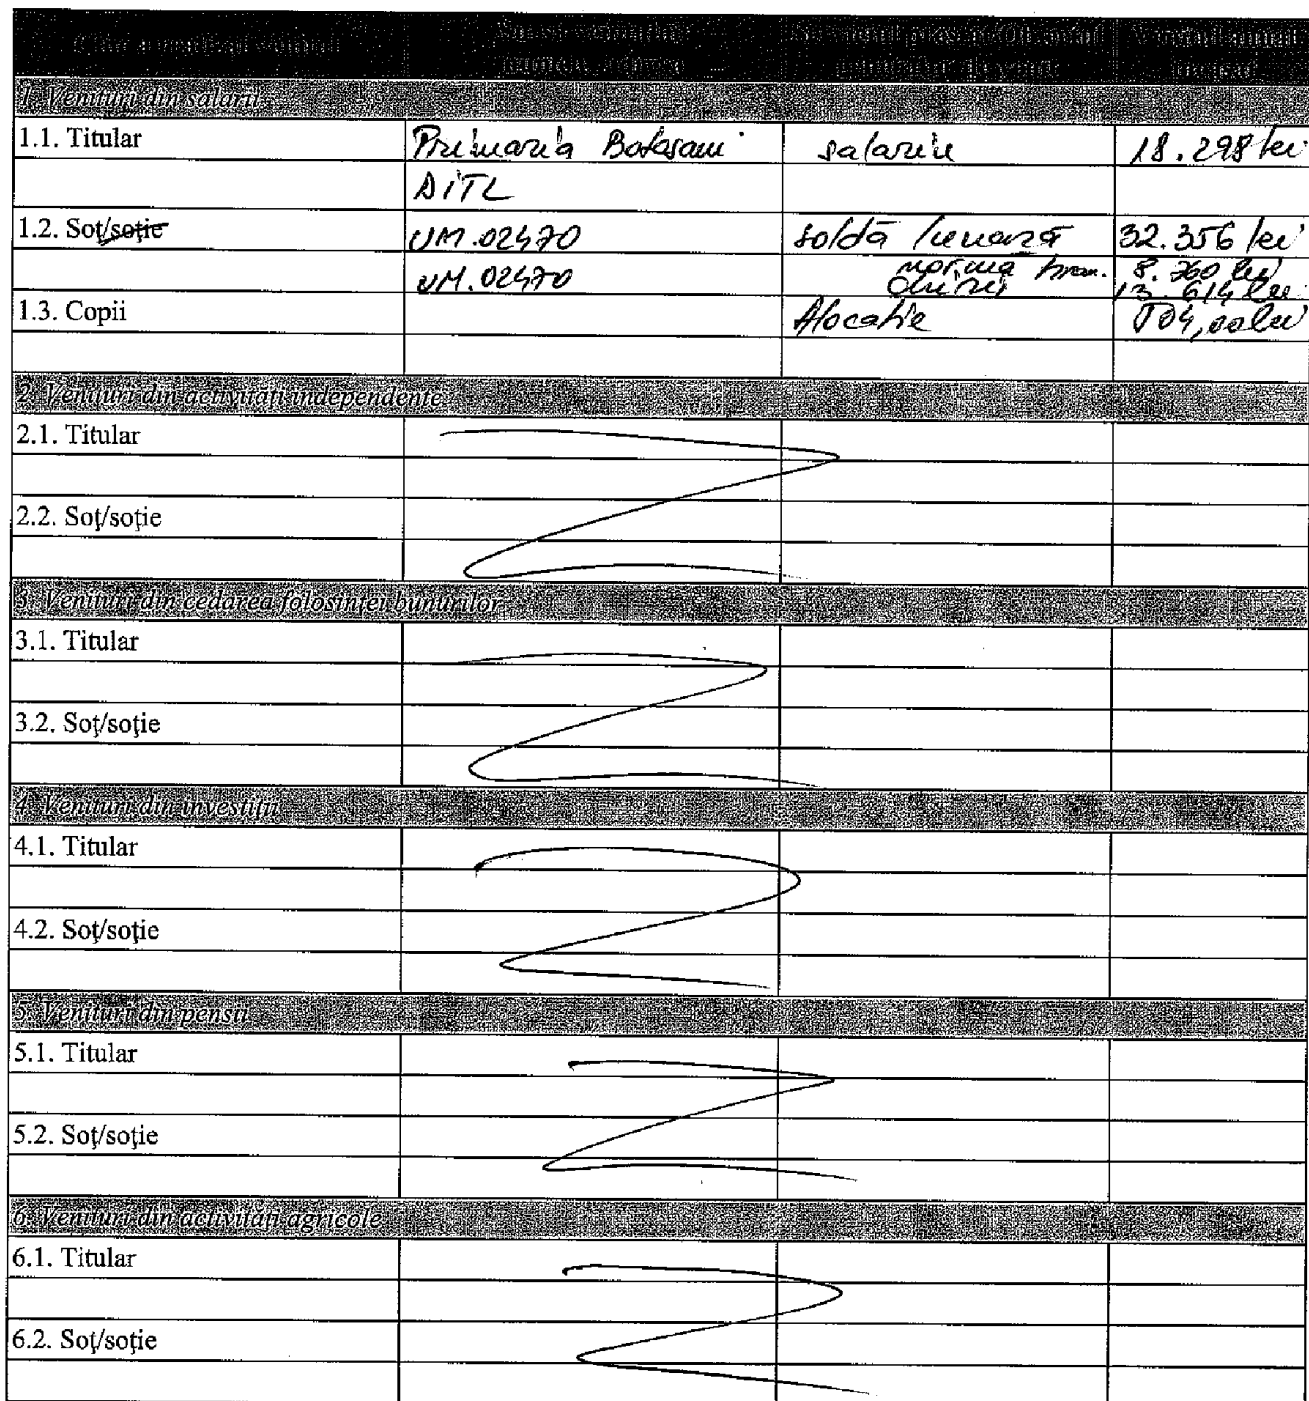 Cine a realizat venitul Sursa venitului: numele, adresa Serviciul prestat/Obiectul generator de venit Venitul anual încasat
1. Venituri din salarii
1.1. Titular Primaria Botosani salariu 18.298 lei
DITL
1.2. Soț/soție UM.02470 soldă lunară 32.356 lei
UM.02470 norma hran. 8.760 lei
chirii 13.614 lei
1.3. Copii Alocatie
2. Venituri din activități independente
2.1. Titular
2.2. Soț/soție
3. Venituri din cedarea folosinței bunurilor
3.1. Titular
3.2. Soț/soție
4. Venituri din investiții
4.1. Titular
4.2. Soț/soție
5. Venituri din pensii
5.1. Titular
5.2. Soț/soție
6. Venituri din activități agricole
6.1. Titular
6.2. Soț/soție